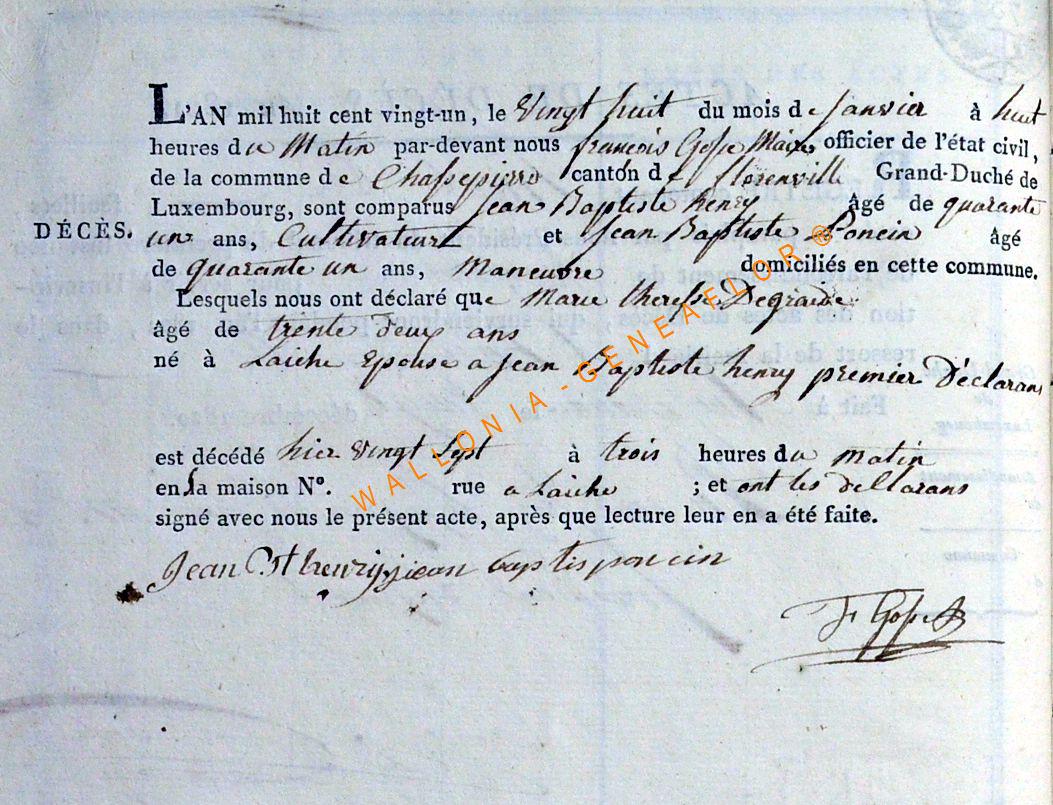 L'AN mil huit cent vingt-un, le Vingt huit du mois de Janvier à huit
heures du Matin par-devant nous françois Gosse Maire, officier de l'état civil,
de la commune de Chassepierre canton de florenville Grand-Duché de
Luxembourg, sont comparus Jean Baptiste henry âgé de quarante
DÉCÈS. un ans, Cultivateur et Jean Baptiste Poncin âgé
de quarante un ans, Maneuvre domiciliés en cette commune.
Lesquels nous ont déclaré que Marie theresse Degraide
âgé de trente deux ans
né à Laiche Epouse a Jean Baptiste henry premier Déclarans
est décédé hier Vingt Sept à trois heures du matin
en la maison N°. rue a Laiche ; et ont les dellarans
signé avec nous le présent acte, après que lecture leur en a été faite.
Jean Bt henry jean baptis poncin
F Gosse
WALLONIA - GENEAFLOR ©